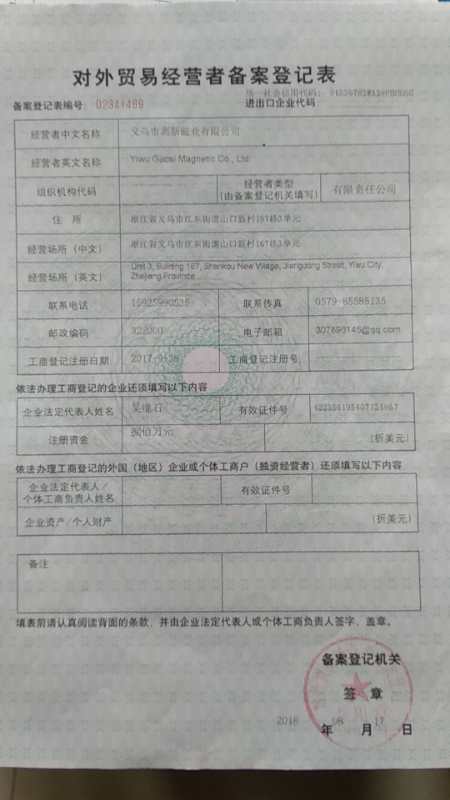 对外贸易经营者备案登记表
统一社会信用代码:
备案登记表编号: 02341469
进出口企业代码:
经营者中文名称 义乌市高斯磁业有限公司
经营者英文名称 Yiwu Gaosi Magnetic Co., Ltd.
组织机构代码 经营者类型 (由备案登记机关填写) 有限责任公司
住 所 浙江省义乌市江东街道山口新村167栋3单元
经营场所(中文) 浙江省义乌市江东街道山口新村167栋3单元
经营场所(英文) Unit 3, Building 167, Shankou New Village, Jiangdong Street, Yiwu City, Zhejiang Province
联系电话 联系传真 0579-85585135
邮政编码 322000 电子邮箱
工商登记注册日期 工商登记注册号
依法办理工商登记的企业还须填写以下内容
企业法定代表人姓名 有效证件号
注册资金 (折美元)
依法办理工商登记的外国(地区)企业或个体工商户(独资经营者)还须填写以下内容
企业法定代表人/ 个体工商负责人姓名 有效证件号
企业资产/个人财产 (折美元)
备注
填表前请认真阅读背面的条款,并由企业法定代表人或个体工商负责人签字、盖章。
备案登记机关
签 章
2018 08 17
年 月 日